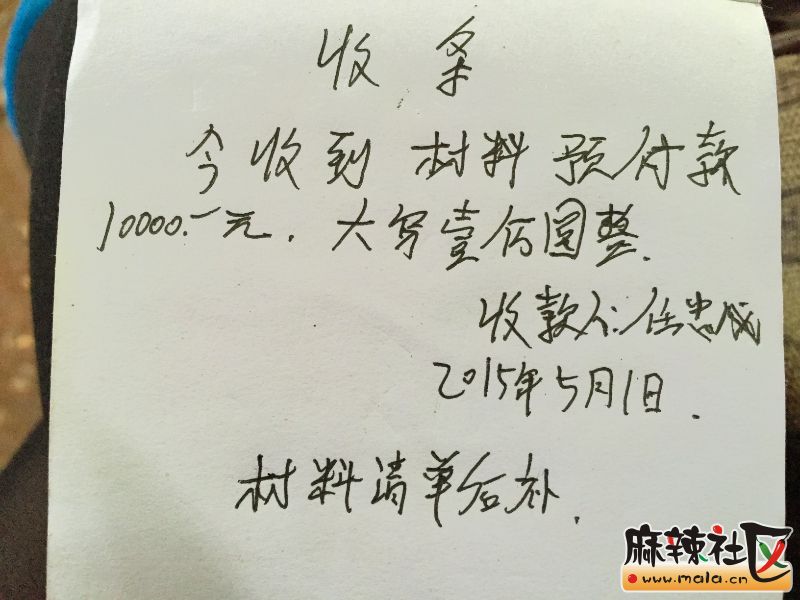 收条
今收到材料预付款
10000.一元.大写壹仿圆整.
收款人:任忠成
2015年5月1日.
材料清单后补.
麻辣社区
www.mala.cn